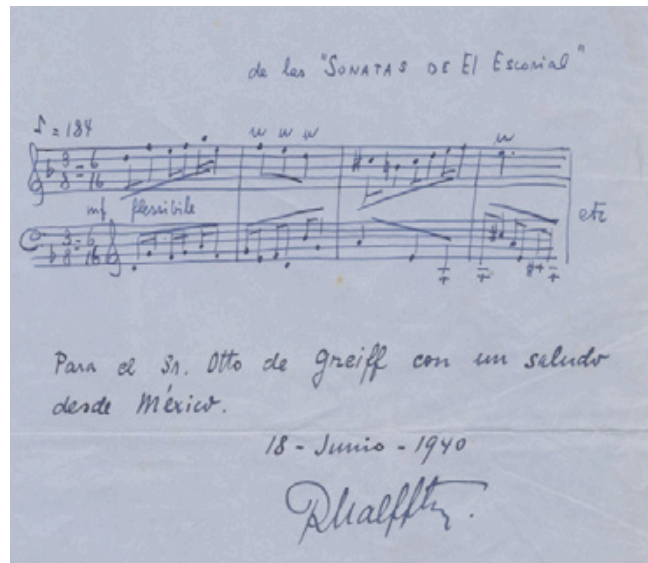 de las "SONATAS DE El Escorial"
♪ = 184
3 = 6
8 = 16
mf flessibile
3 = 6
8 = 16
etc
Para el Sr. Otto de Greiff con un saludo
desde México.
18 - Junio - 1940
RHalffter.